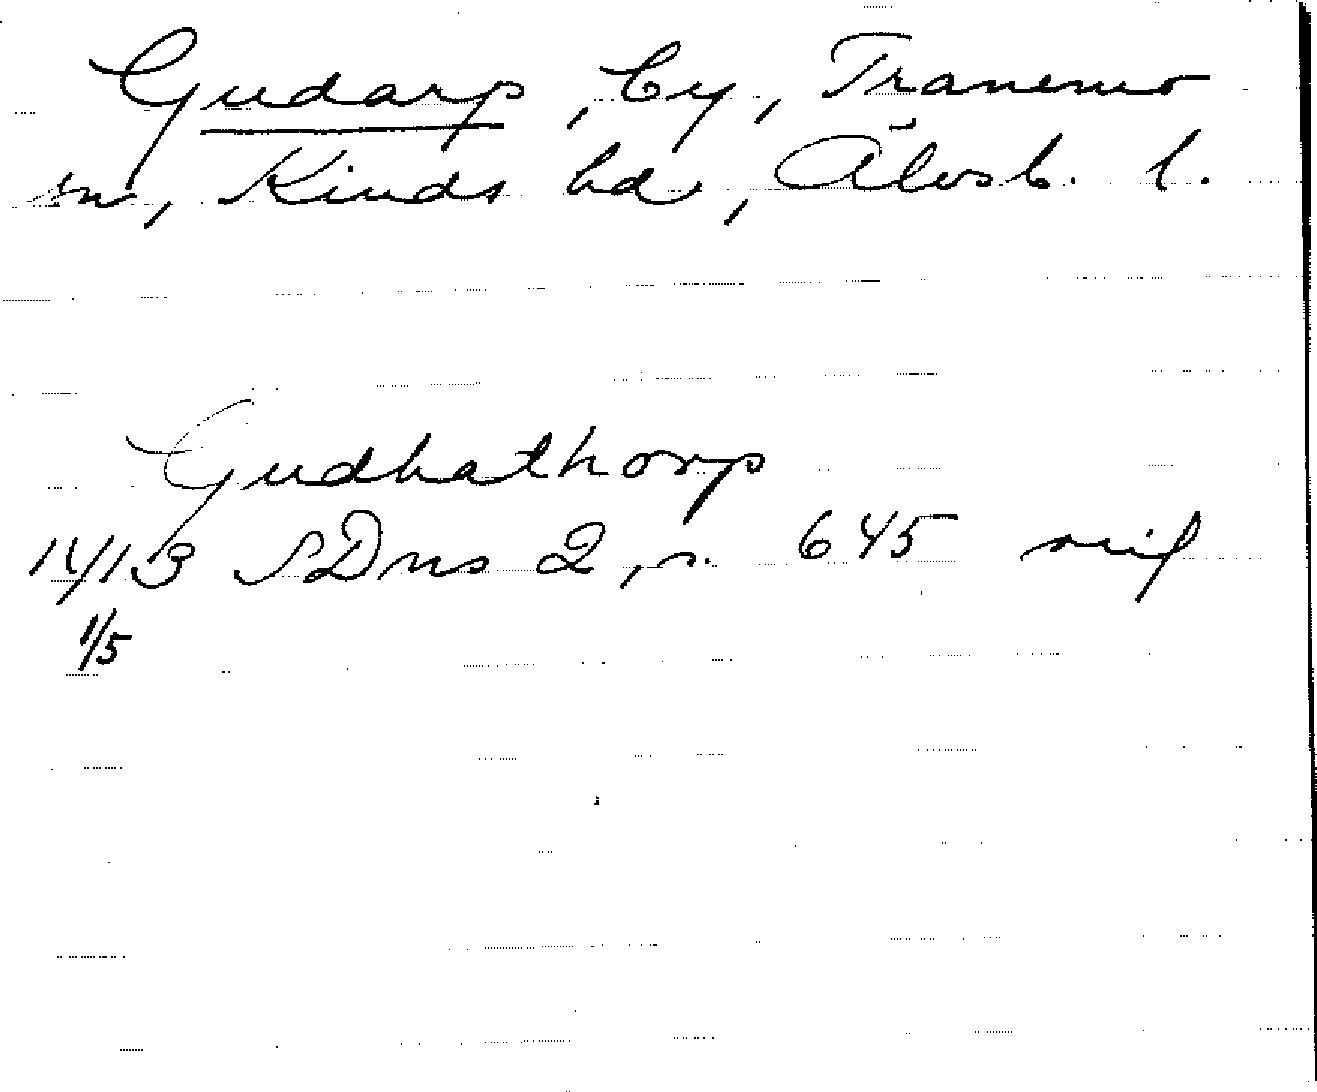 Gudarp, by, Tranemo
sn, Kinds hd, Älvsb. l.
Gudhathorp
1413 SDns 2, s. 645 orig
1/5